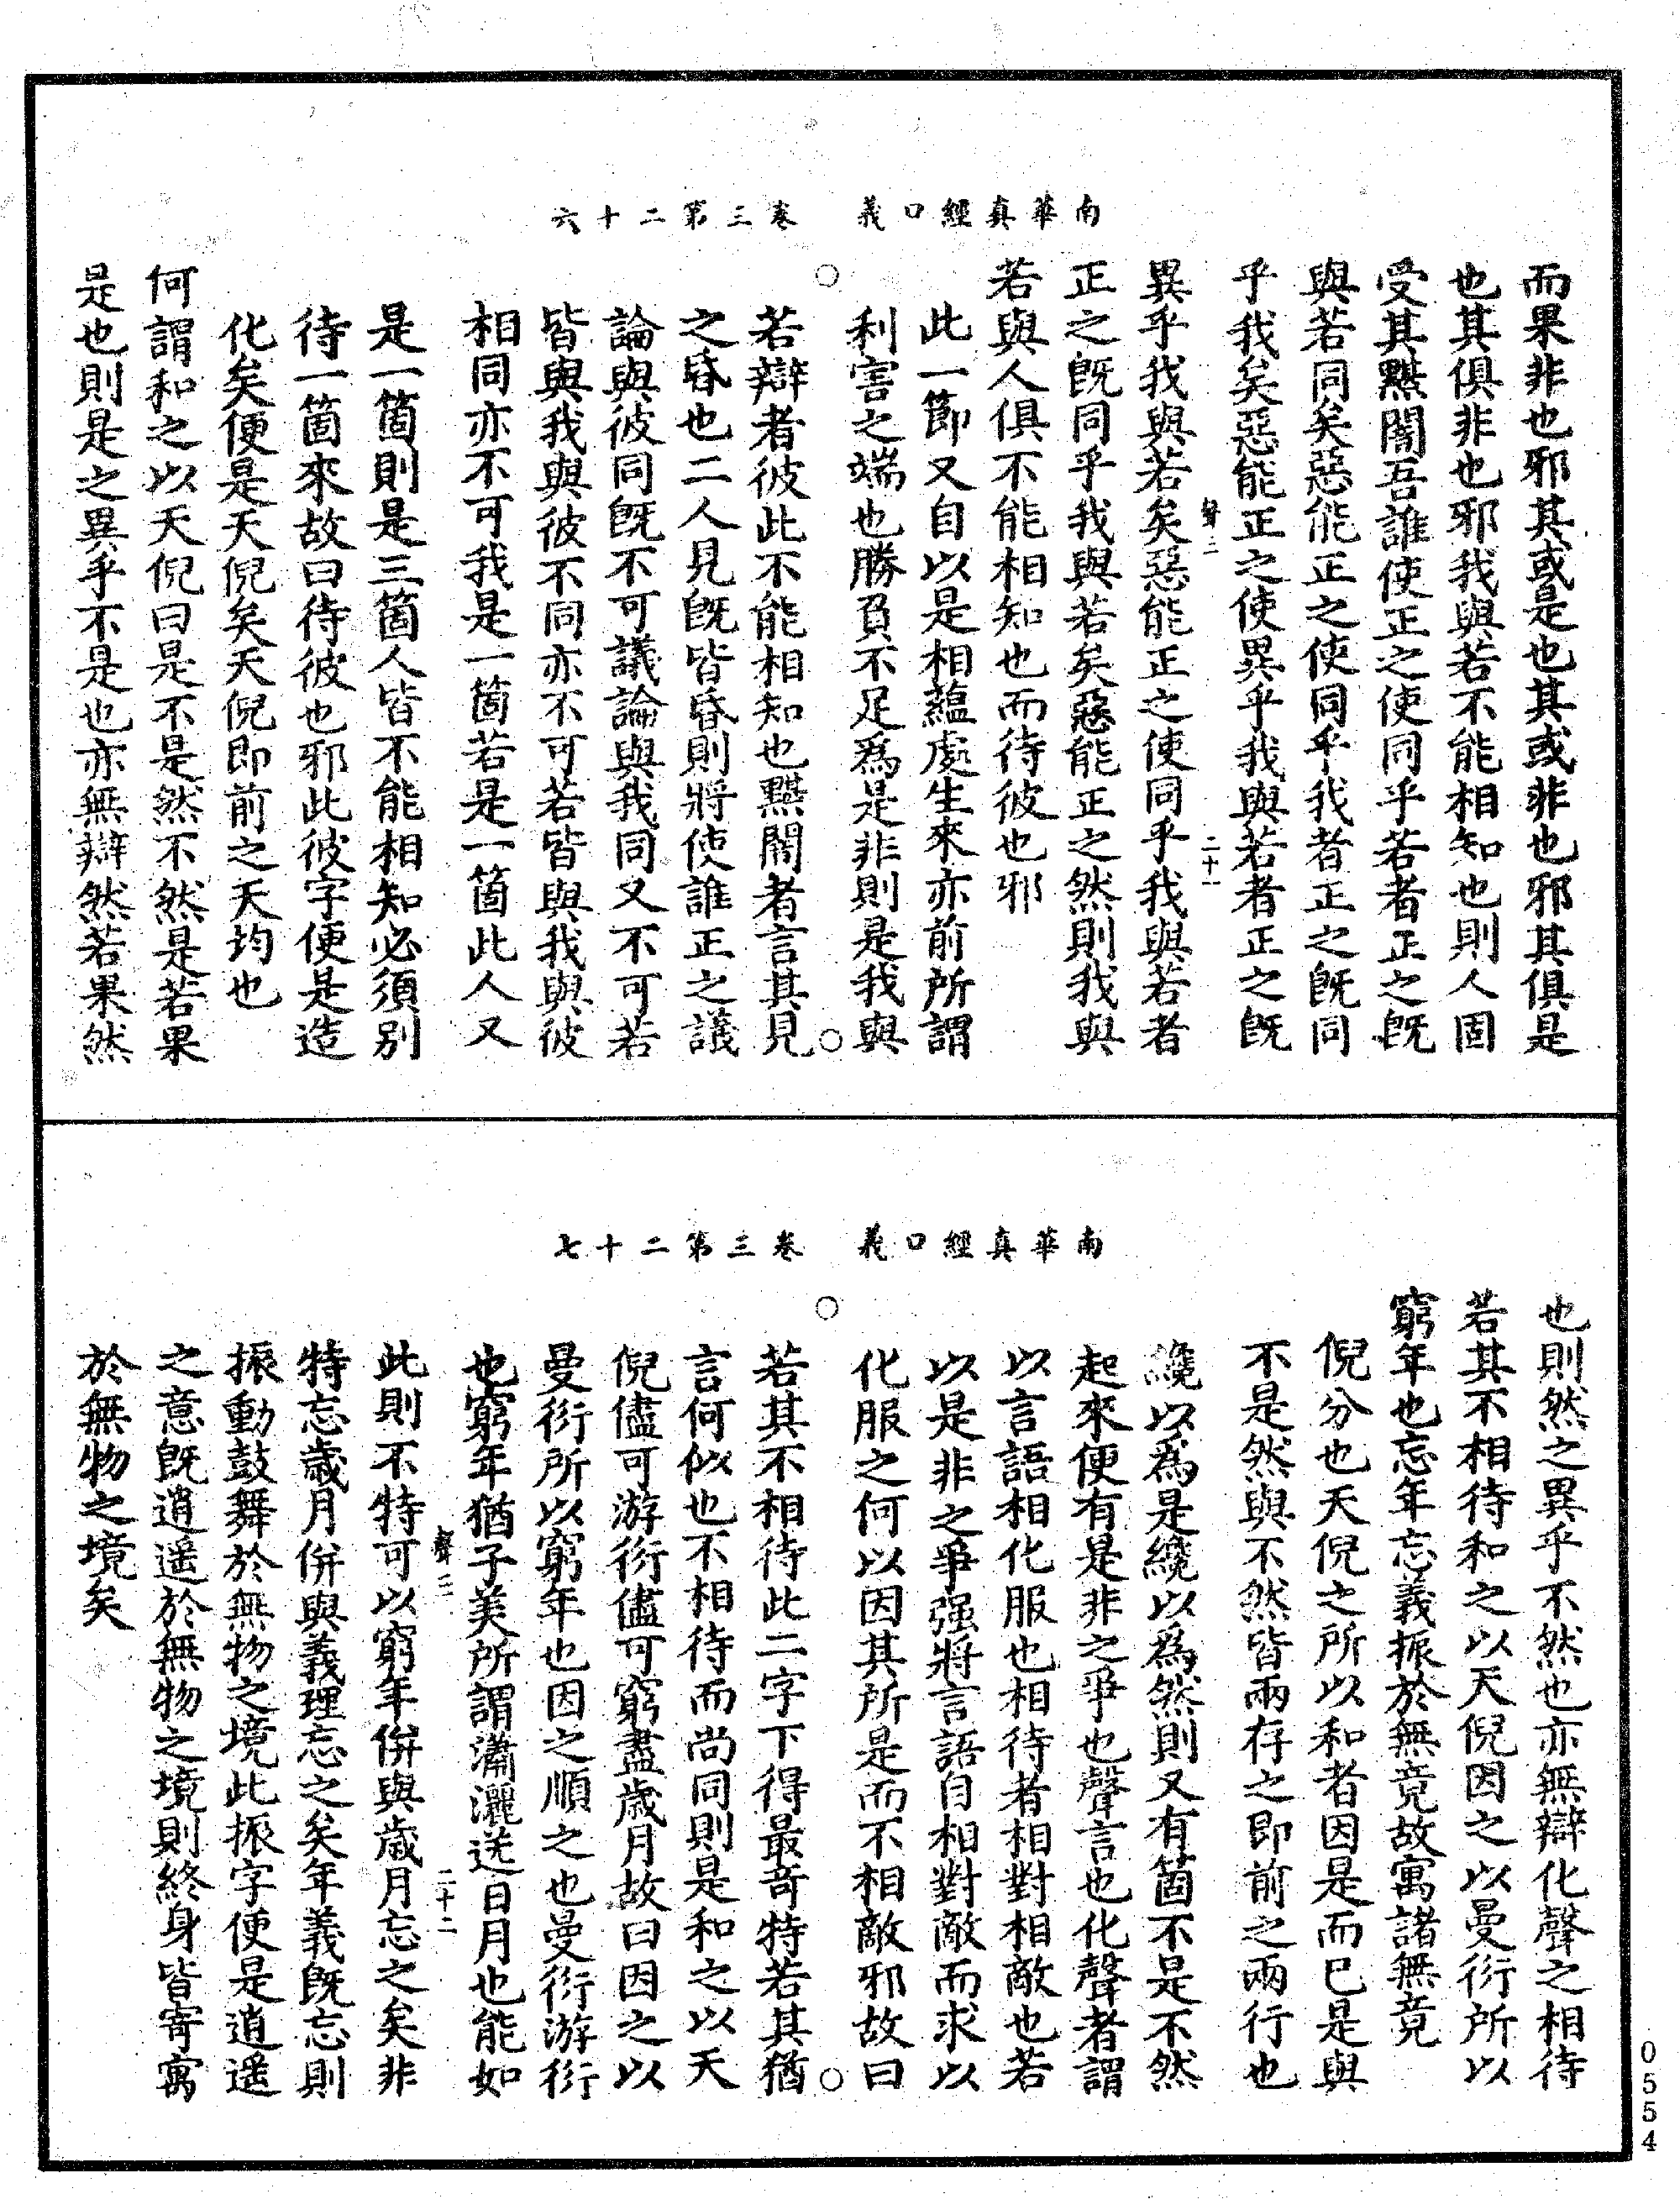 南華真經口義　卷三第二十六
而果非也邪其或是也其或非也邪其俱是
也其俱非也邪我與若不能相知也則人固
受其黮闇吾誰使正之使同乎若者正之旣
與若同矣惡能正之使同乎我者正之旣同
乎我矣惡能正之使異乎我與若者正之旣
聲二　二十一
異乎我與若矣惡能正之使同乎我與若者
正之旣同乎我與若矣惡能正之然則我與
若與人俱不能相知也而待彼也邪
此一節又自以是相蘊處生來亦前所謂
利害之端也勝負不足爲是非則是我與
若辯者彼此不能相知也黮闇者言其見
之昏也二人見旣皆昏則將使誰正之議
論與彼同旣不可議論與我同又不可若
皆與我與彼不同亦不可若皆與我與彼
相同亦不可我是一箇若是一箇此人又
是一箇則是三箇人皆不能相知必須別
待一箇來故曰待彼也邪此彼字便是造
化矣便是天倪矣天倪即前之天均也
何謂和之以天倪曰是不是然不然是若果
是也則是之異乎不是也亦無辯然若果然
南華真經口義　卷三第二十七
也則然之異乎不然也亦無辯化聲之相待
若其不相待和之以天倪因之以曼衍所以
窮年也忘年忘義振於無竟故寓諸無竟
倪分也天倪之所以和者因是而已是與
不是然與不然皆兩存之即前之兩行也
纔以爲是纔以爲然則又有箇不是不然
起來便有是非之爭也聲言也化聲者謂
以言語相化服也相待者相對相敵也若
以是非之爭强將言語自相對敵而求以
化服之何以因其所是而不相敵邪故曰
若其不相待此二字下得最奇特若其猶
言何似也不相待而尚同則是和之以天
倪儘可游衍儘可窮盡歲月故曰因之以
曼衍所以窮年也因之順之也曼衍游衍
也窮年猶子美所謂瀟灑送日月也能如
聲二　二十二
此則不特可以窮年併與歲月忘之矣非
特忘歲月併與義理忘之矣年義旣忘則
振動鼓舞於無物之境此振字便是逍遥
之意旣逍遥於無物之境則終身皆寄寓
於無物之境矣
0554